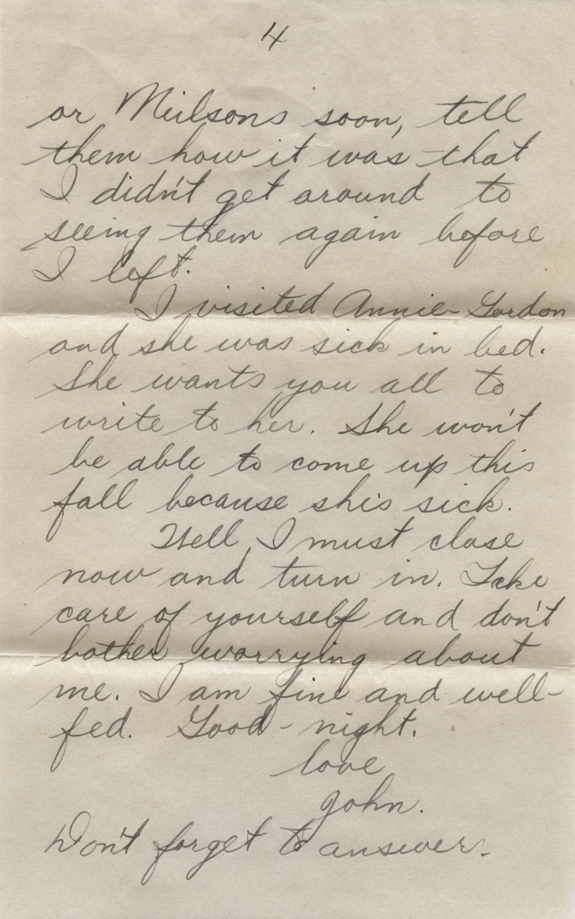 4
or Meilsons soon, tell
them how it was that
I didn't get around to
seeing them again before
I left.
I visited Annie Gordon
and she was sick in bed.
She wants you all to
write to her. She won't
be able to come up this
fall because shis sick.
Well, I must close
now and turn in. Take
care of yourself and don't
bother worrying about
me. I am fine and well-
fed. Good-night.
love
John.
Don't forget to answer.